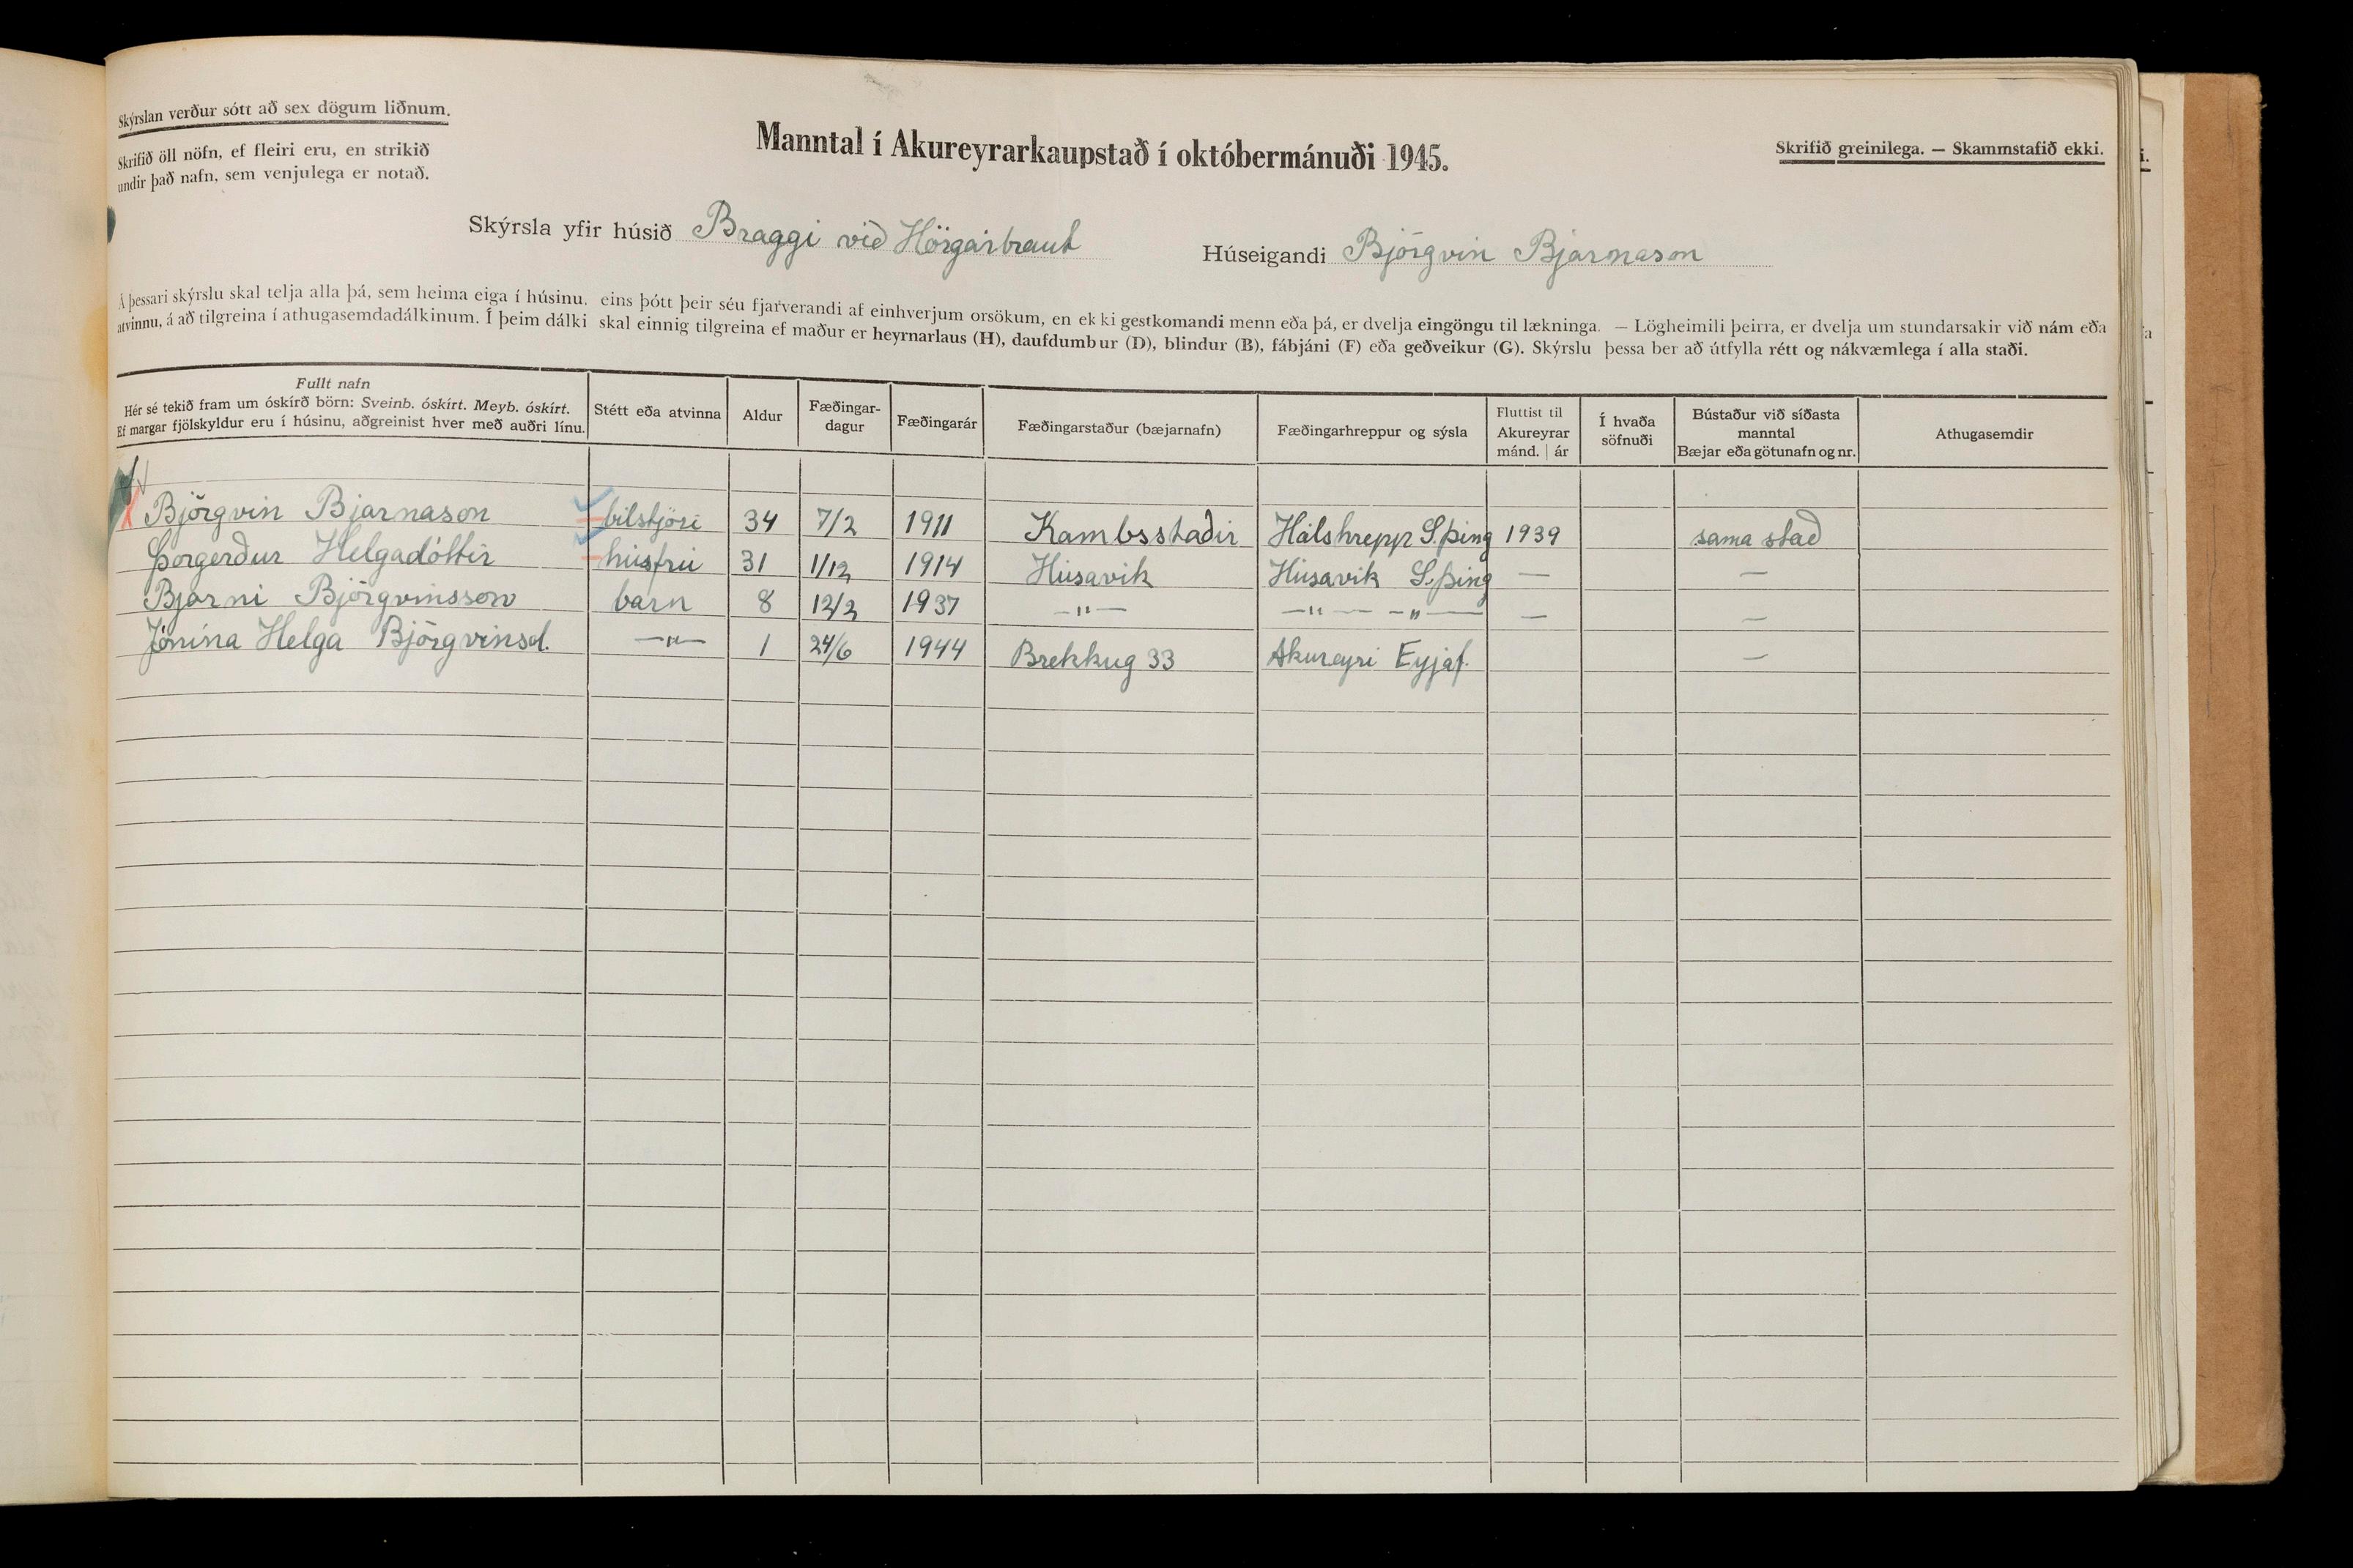 Skýrslan verður sótt að sex dögum liðnum.
Skrifið öll nöfn, ef fleiri eru, en strikið
undir það nafn, sem venjulega er notað.
Manntal í Akureyrarkaupstað í októbermánuði 1945.
Skrifið greinilega. — Skammstafið ekki.
Skýrsla yfir húsið Braggi við Hörgárbraut
Húseigandi Björgvin Bjarnason
Á þessari skýrslu skal telja alla þá, sem heima eiga í húsinu, eins þótt þeir séu fjarverandi af einhverjum orsökum, en ekki gestkomandi menn eða þá, er dvelja eingöngu til lækninga. — Lögheimili þeirra, er dvelja um stundarsakir við nám eða
atvinnu, á að tilgreina í athugasemdadálkinum. Í þeim dálki skal einnig tilgreina ef maður er heyrnarlaus (H), daufdumbur (D), blindur (B), fábjáni (F) eða geðveikur (G). Skýrslu þessa ber að útfylla rétt og nákvæmlega í alla staði.
Fullt nafn
Hér sé tekið fram um óskírð börn: Sveinb. óskírt. Meyb. óskírt.
Ef margar fjölskyldur eru í húsinu, aðgreinist hver með auðri línu.
Stétt eða atvinna
Aldur
Fæðingar-
dagur
Fæðingarár
Fæðingarstaður (bæjarnafn)
Fæðingarhreppur og sýsla
Fluttist til
Akureyrar
mánd. | ár
Í hvaða
söfnuði
Bústaður við síðasta
manntal
Bæjar eða götunafn og nr.
Athugasemdir
Björgvin Bjarnason bílstjóri 34 7/2 1911 Kambsstaðir Hálshrepp S.þing 1939 sama stað
Þorgerður Helgadóttir húsfrú 31 1/12 1914 Húsavík Húsavík S.þing — —
Bjarni Björgvinsson barn 8 12/2 1937 —"— —"— —"— — —
Jónína Helga Björgvinsd. —"— 1 24/6 1944 Brekkug 33 Akureyri Eyjaf. —